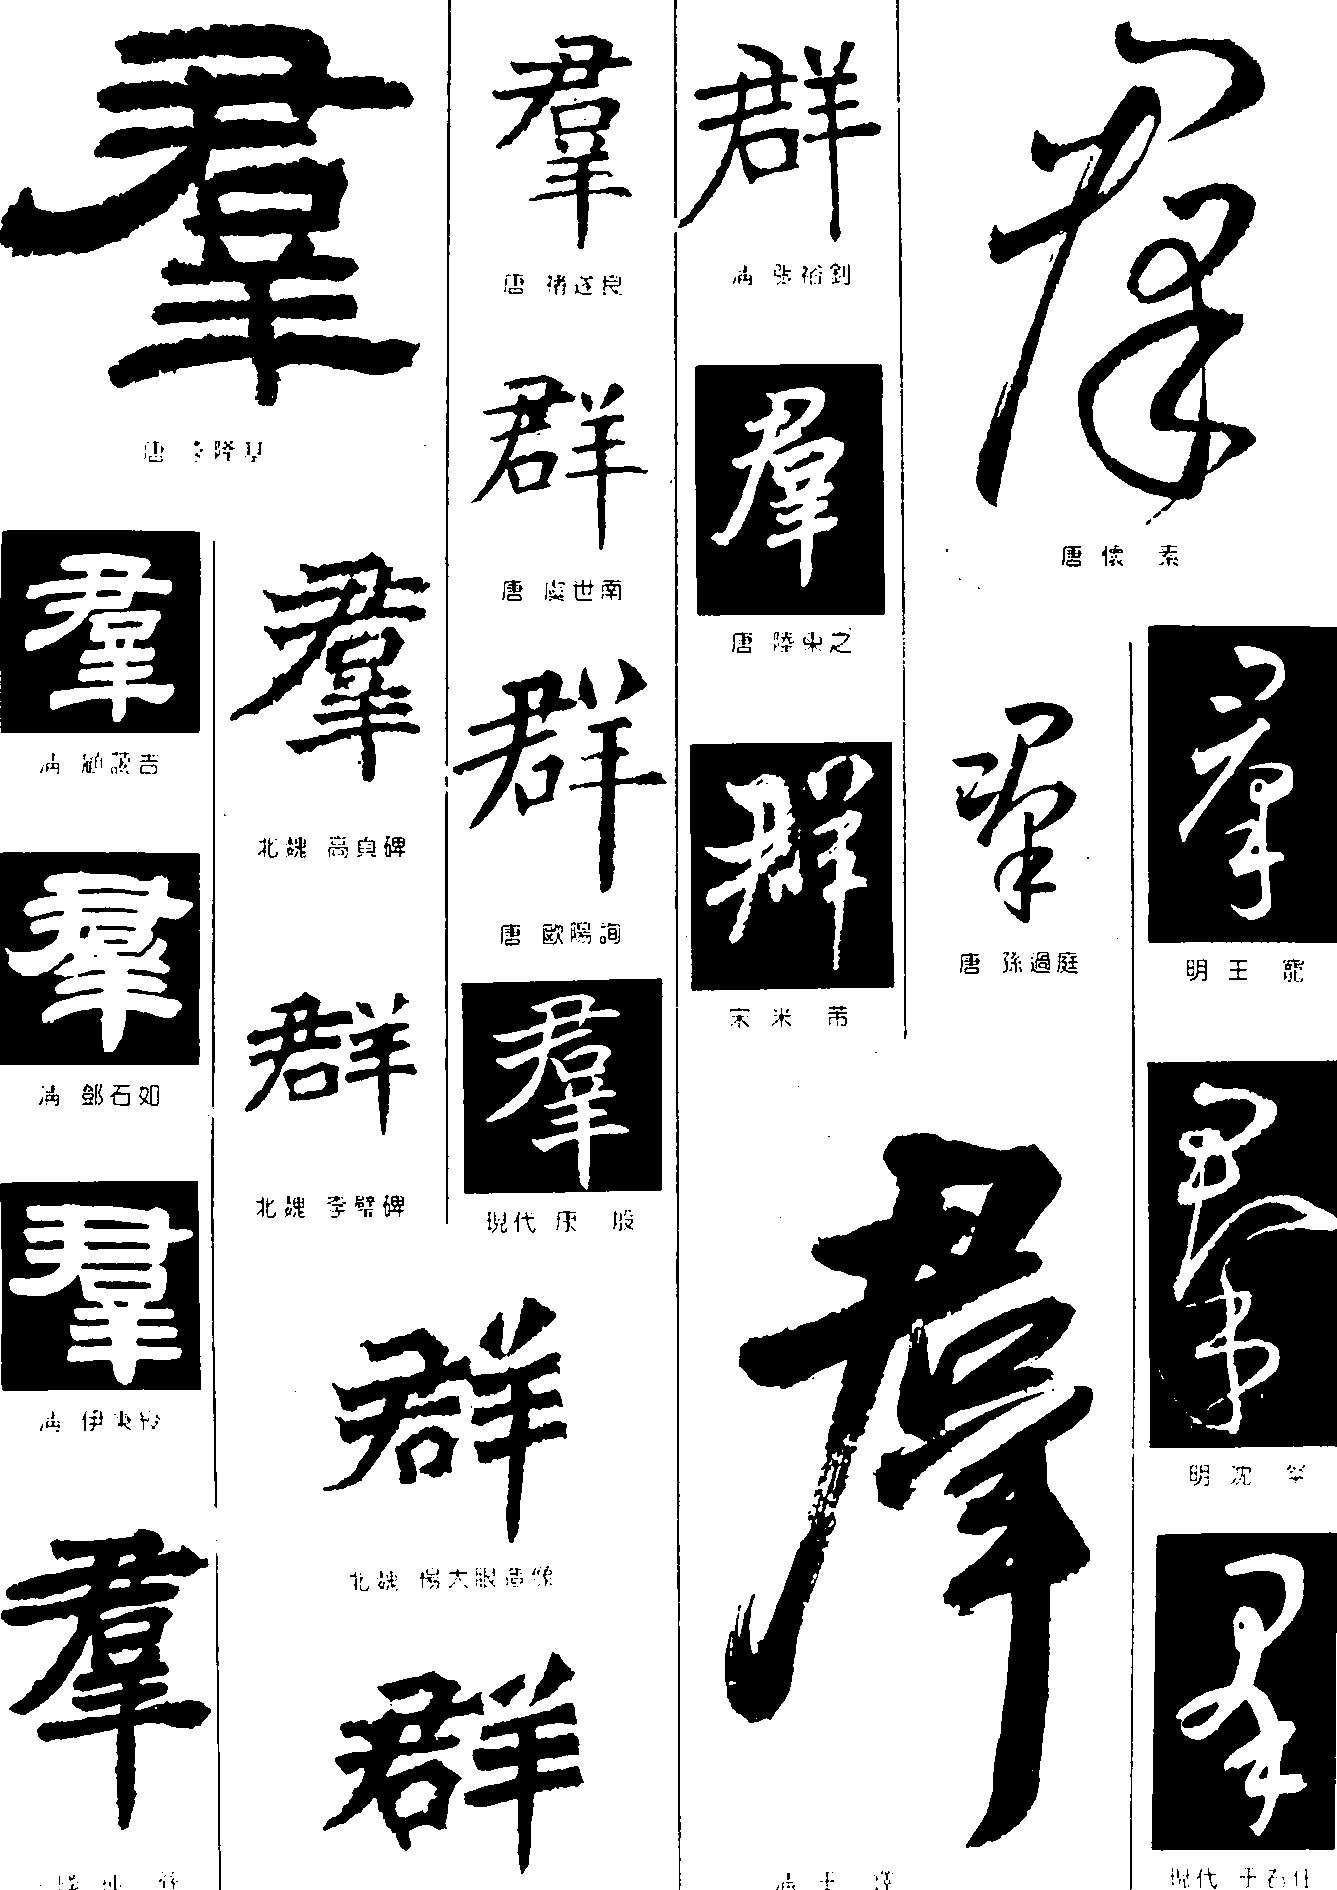 羣
唐 李隆基
羣
清 顧藹吉
羣
清 鄧石如
羣
清 伊秉綬
羣
羣
北魏 高貞碑
群
北魏 李璧碑
群
北魏 楊大眼造像
群
羣
唐 褚遂良
群
唐 虞世南
群
唐 歐陽詢
羣
現代 康 殷
群
清 張裕釗
羣
唐 陸柬之
群
宋 米 芾
羣
清 王 鐸
羣
唐 懷 素
羣
唐 孫過庭
羣
明 王 寵
羣
明 沈 粲
羣
現代 于右任